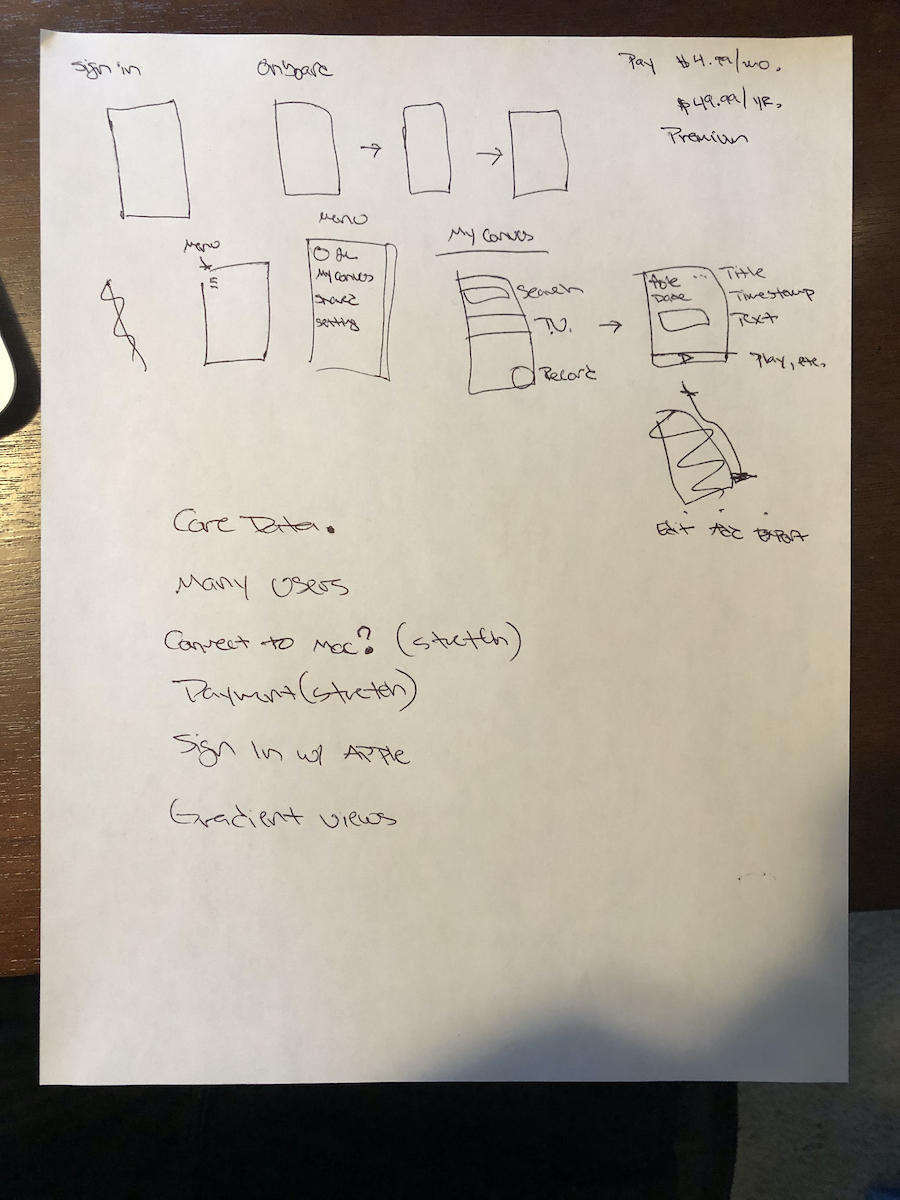 Sign in
Onboard
Pay $4.99/mo.
$49.99/YR.
Premium
Menu
Menu
My Canvas
Shared
Setting
My Canvas
Search
T.V.
Record
Date
Title
Timestamp
Text
Play, etc.
Edit Add Export
Core Data.
Many Users
Connect to Mac? (stretch)
Payment (stretch)
Sign In w/ APPle
Gradient views